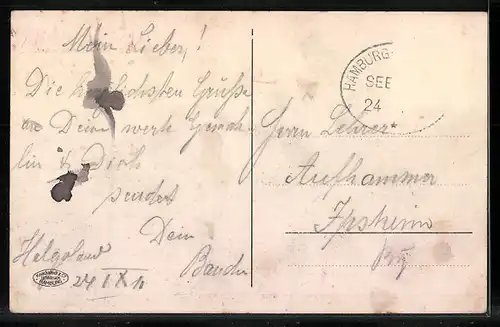 Mein Lieber,!
Die herzlichsten Grüße
an Deine werte Gemah
lin & Dich
sendet
Dein
Helgoland
24 IX 11
HAMBURG
SEE
24
Herrn Lehrer
Aufhammer
Ipsheim